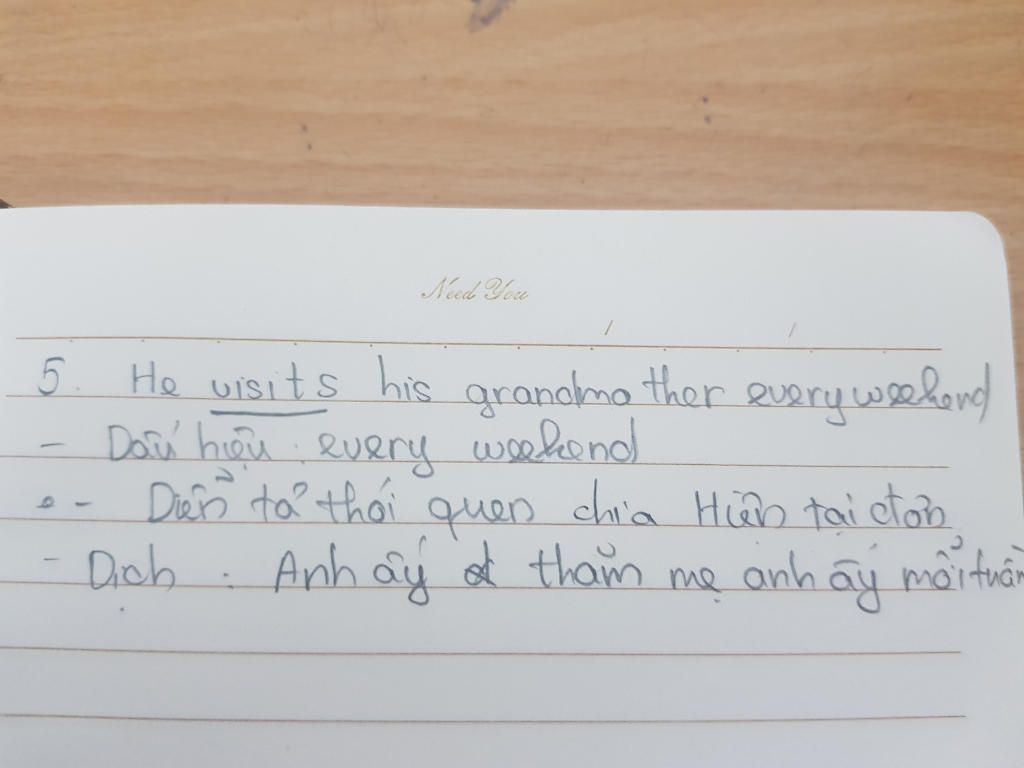 Need You
5. He visits his grandmother every weekend
- Dấu hiệu : every weekend
- Diễn tả thói quen chia Hiện tại đơn
- Dịch : Anh ấy thăm mẹ anh ấy mỗi tuần